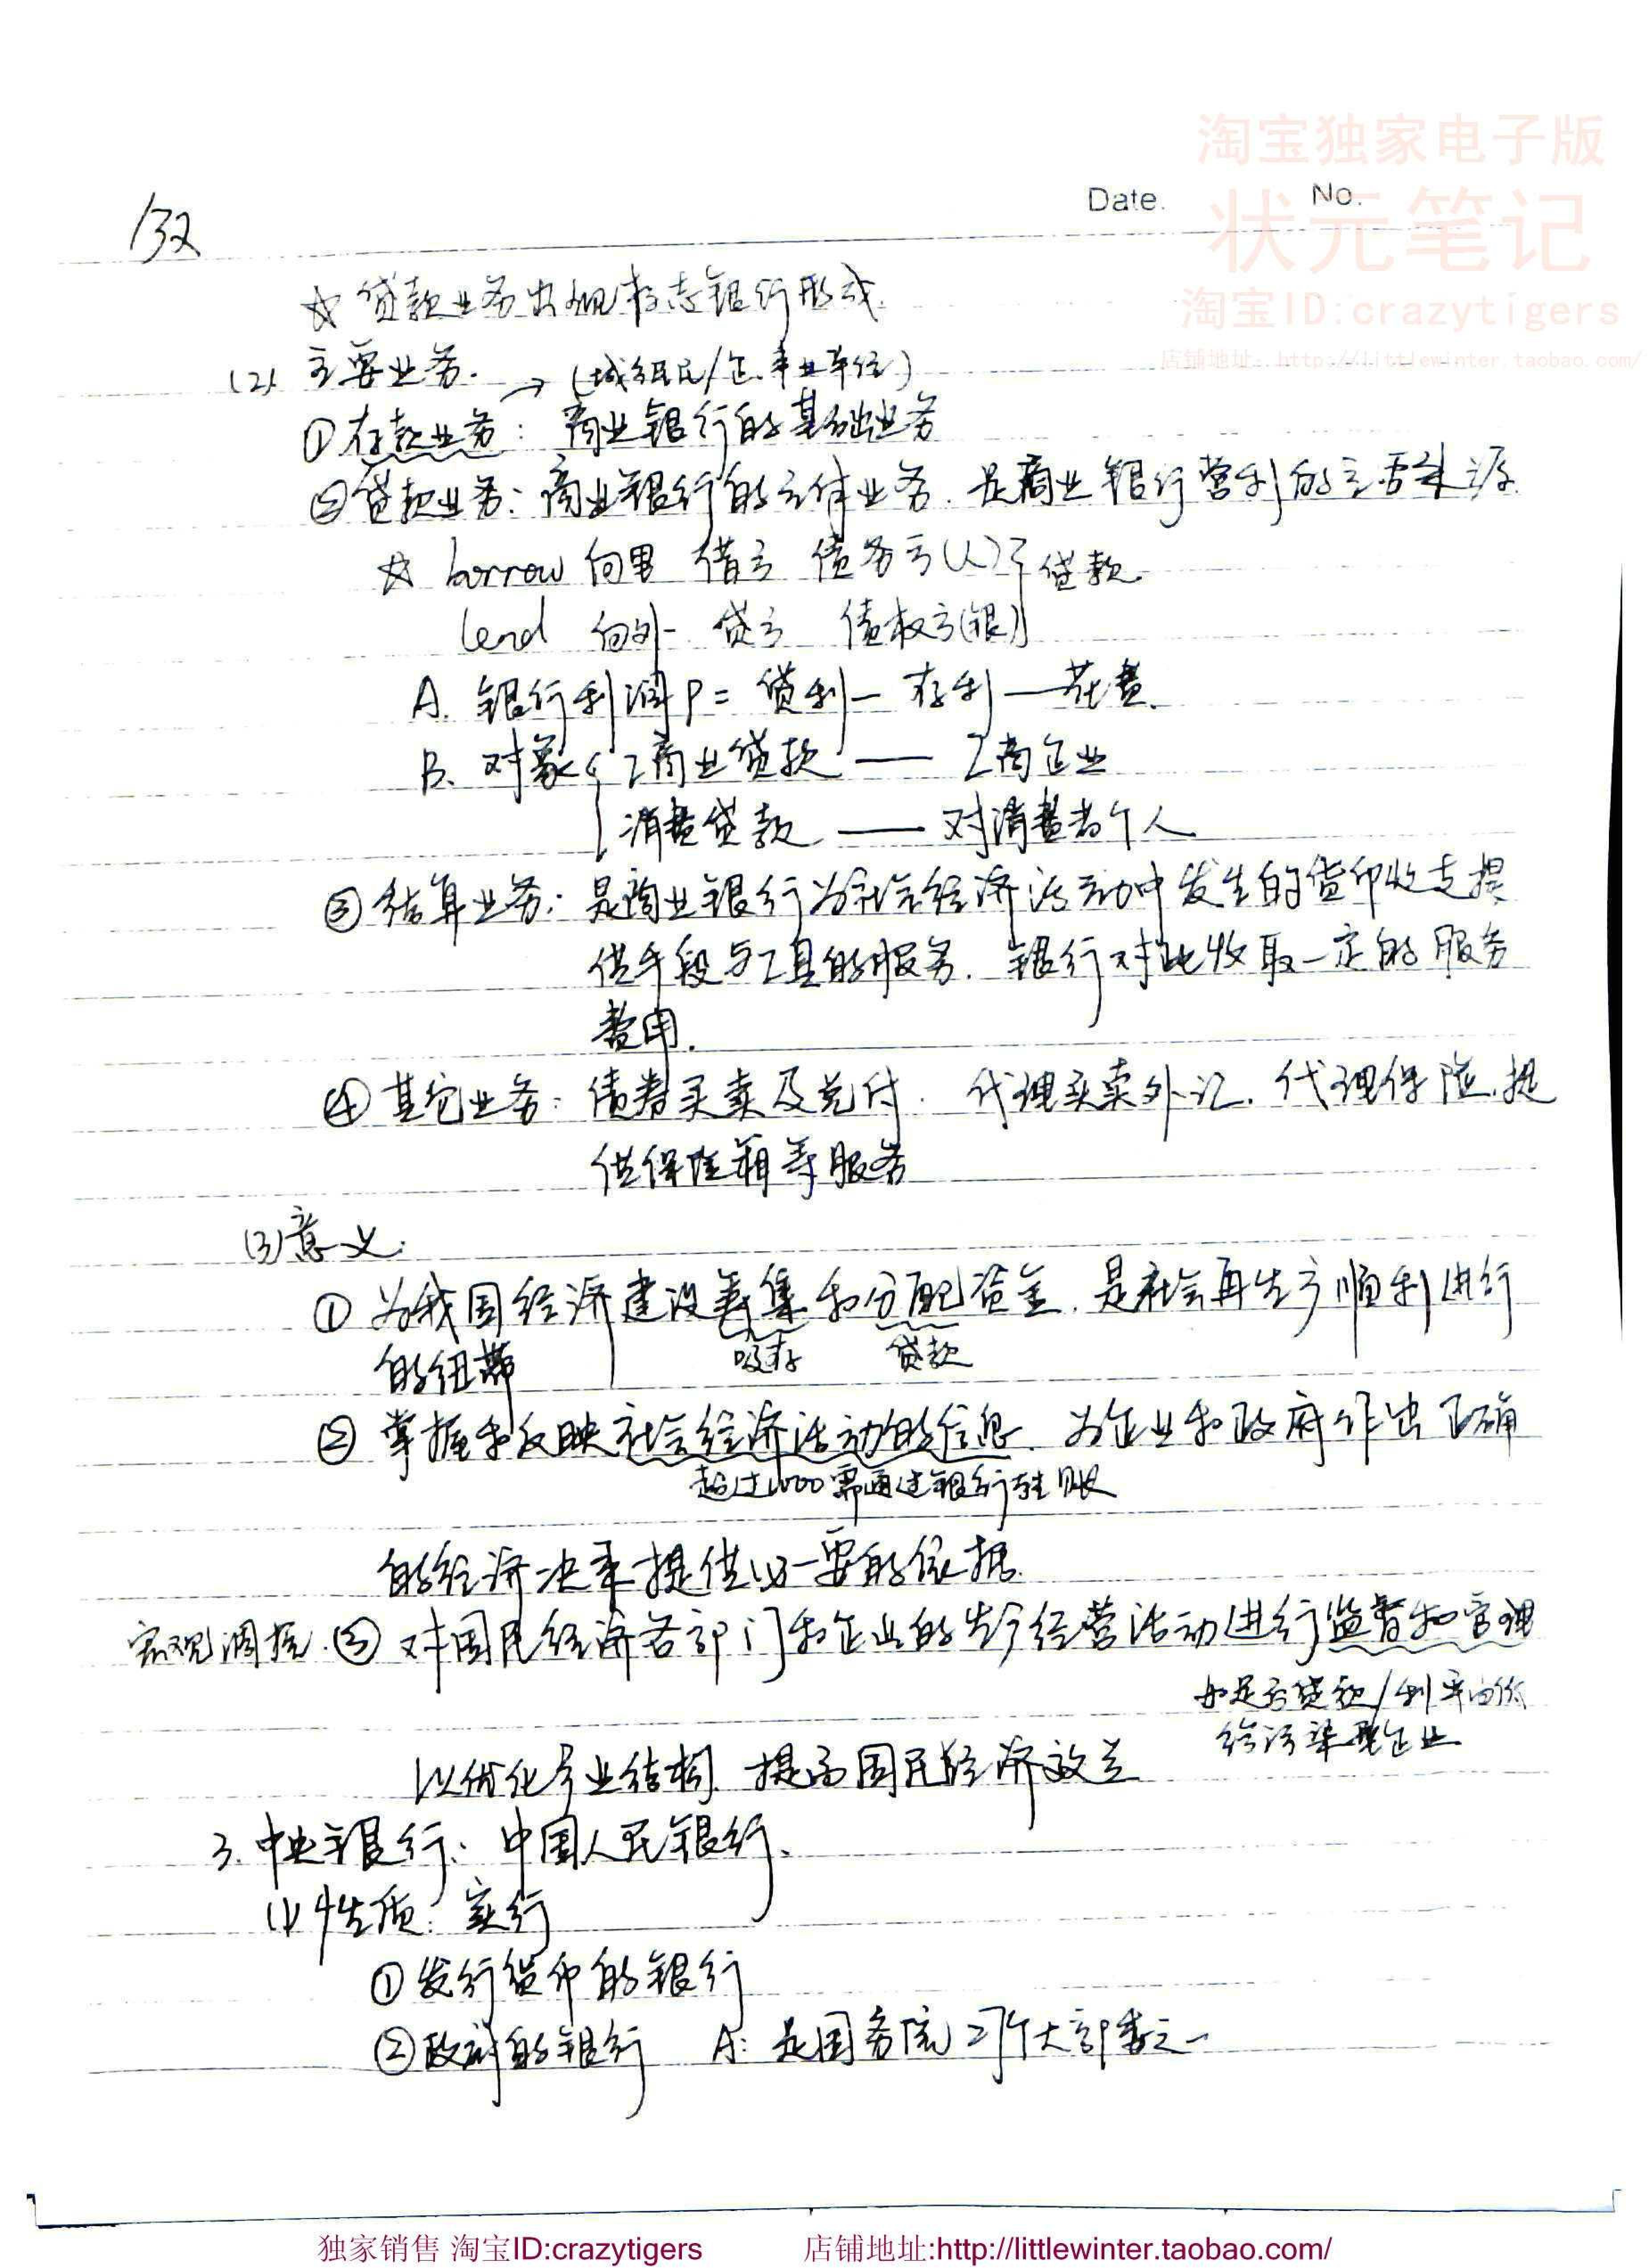 淘宝独家电子版
Date. No.
状元笔记
132
淘宝ID:crazytigers
☆ 贷款业务出现标志银行形成.
店铺地址: http://littlewinter.taobao.com/
(2) 主要业务. → (城乡居民/企.事业单位)
①存款业务: 商业银行的基础业务
②贷款业务: 商业银行的主体业务. 是商业银行营利的主要来源.
☆ borrow 向里 借方 债务方(人) } 贷款.
lend 向外 贷方 债权方(银)
A. 银行利润P= 贷利 — 存利 — 花费.
B. 对象 { 工商业贷款 —— 工商企业
消费贷款 —— 对消费者个人
③结算业务: 是商业银行为社会经济活动中发生的货币收支提
供手段与工具的服务. 银行对此收取一定的服务
费用.
④其它业务: 债券买卖及兑付. 代理买卖外汇. 代理保险. 提
供保险箱等服务
(3)意义:
① 为我国经济建设筹集和分配资金. 是社会再生产顺利进行
吸存 贷款
的纽带
② 掌握和反映社会经济活动的信息. 为企业和政府作出正确
超过1000需通过银行转账
的经济决策提供必要的依据.
宏观调控. ③ 对国民经济各部门和企业的生产经营活动进行监督和管理
如是否贷款/利率
给污染型企业
以优化产业结构. 提高国民经济效益
3. 中央银行: 中国人民银行.
(1) 性质: 实行
①发行货币的银行
②政府的银行 A: 是国务院27个大部委之一
独家销售 淘宝ID:crazytigers 店铺地址:http://littlewinter.taobao.com/